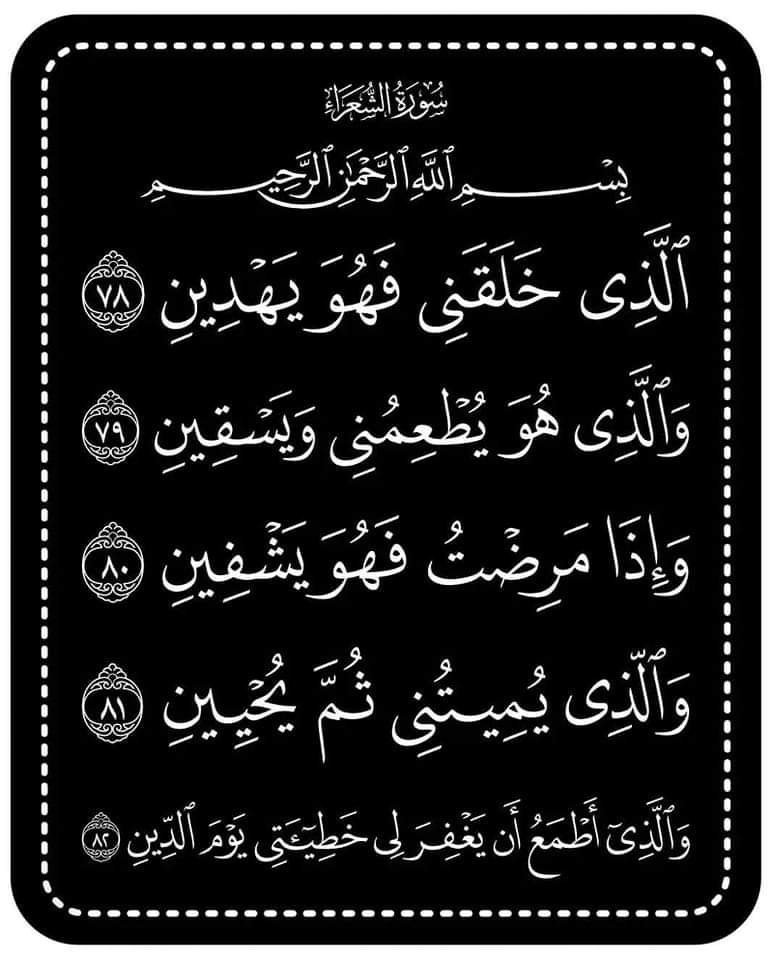 سُورَةُ الشُّعَرَاءِ
بِسْمِ ٱللَّهِ ٱلرَّحْمَٰنِ ٱلرَّحِيمِ
ٱلَّذِى خَلَقَنِى فَهُوَ يَهْدِينِ ٧٨
وَٱلَّذِى هُوَ يُطْعِمُنِى وَيَسْقِينِ ٧٩
وَإِذَا مَرِضْتُ فَهُوَ يَشْفِينِ ٨٠
وَٱلَّذِى يُمِيتُنِى ثُمَّ يُحْيِينِ ٨١
وَٱلَّذِىٓ أَطْمَعُ أَن يَغْفِرَ لِى خَطِيٓـَٔتِى يَوْمَ ٱلدِّينِ ٨٢